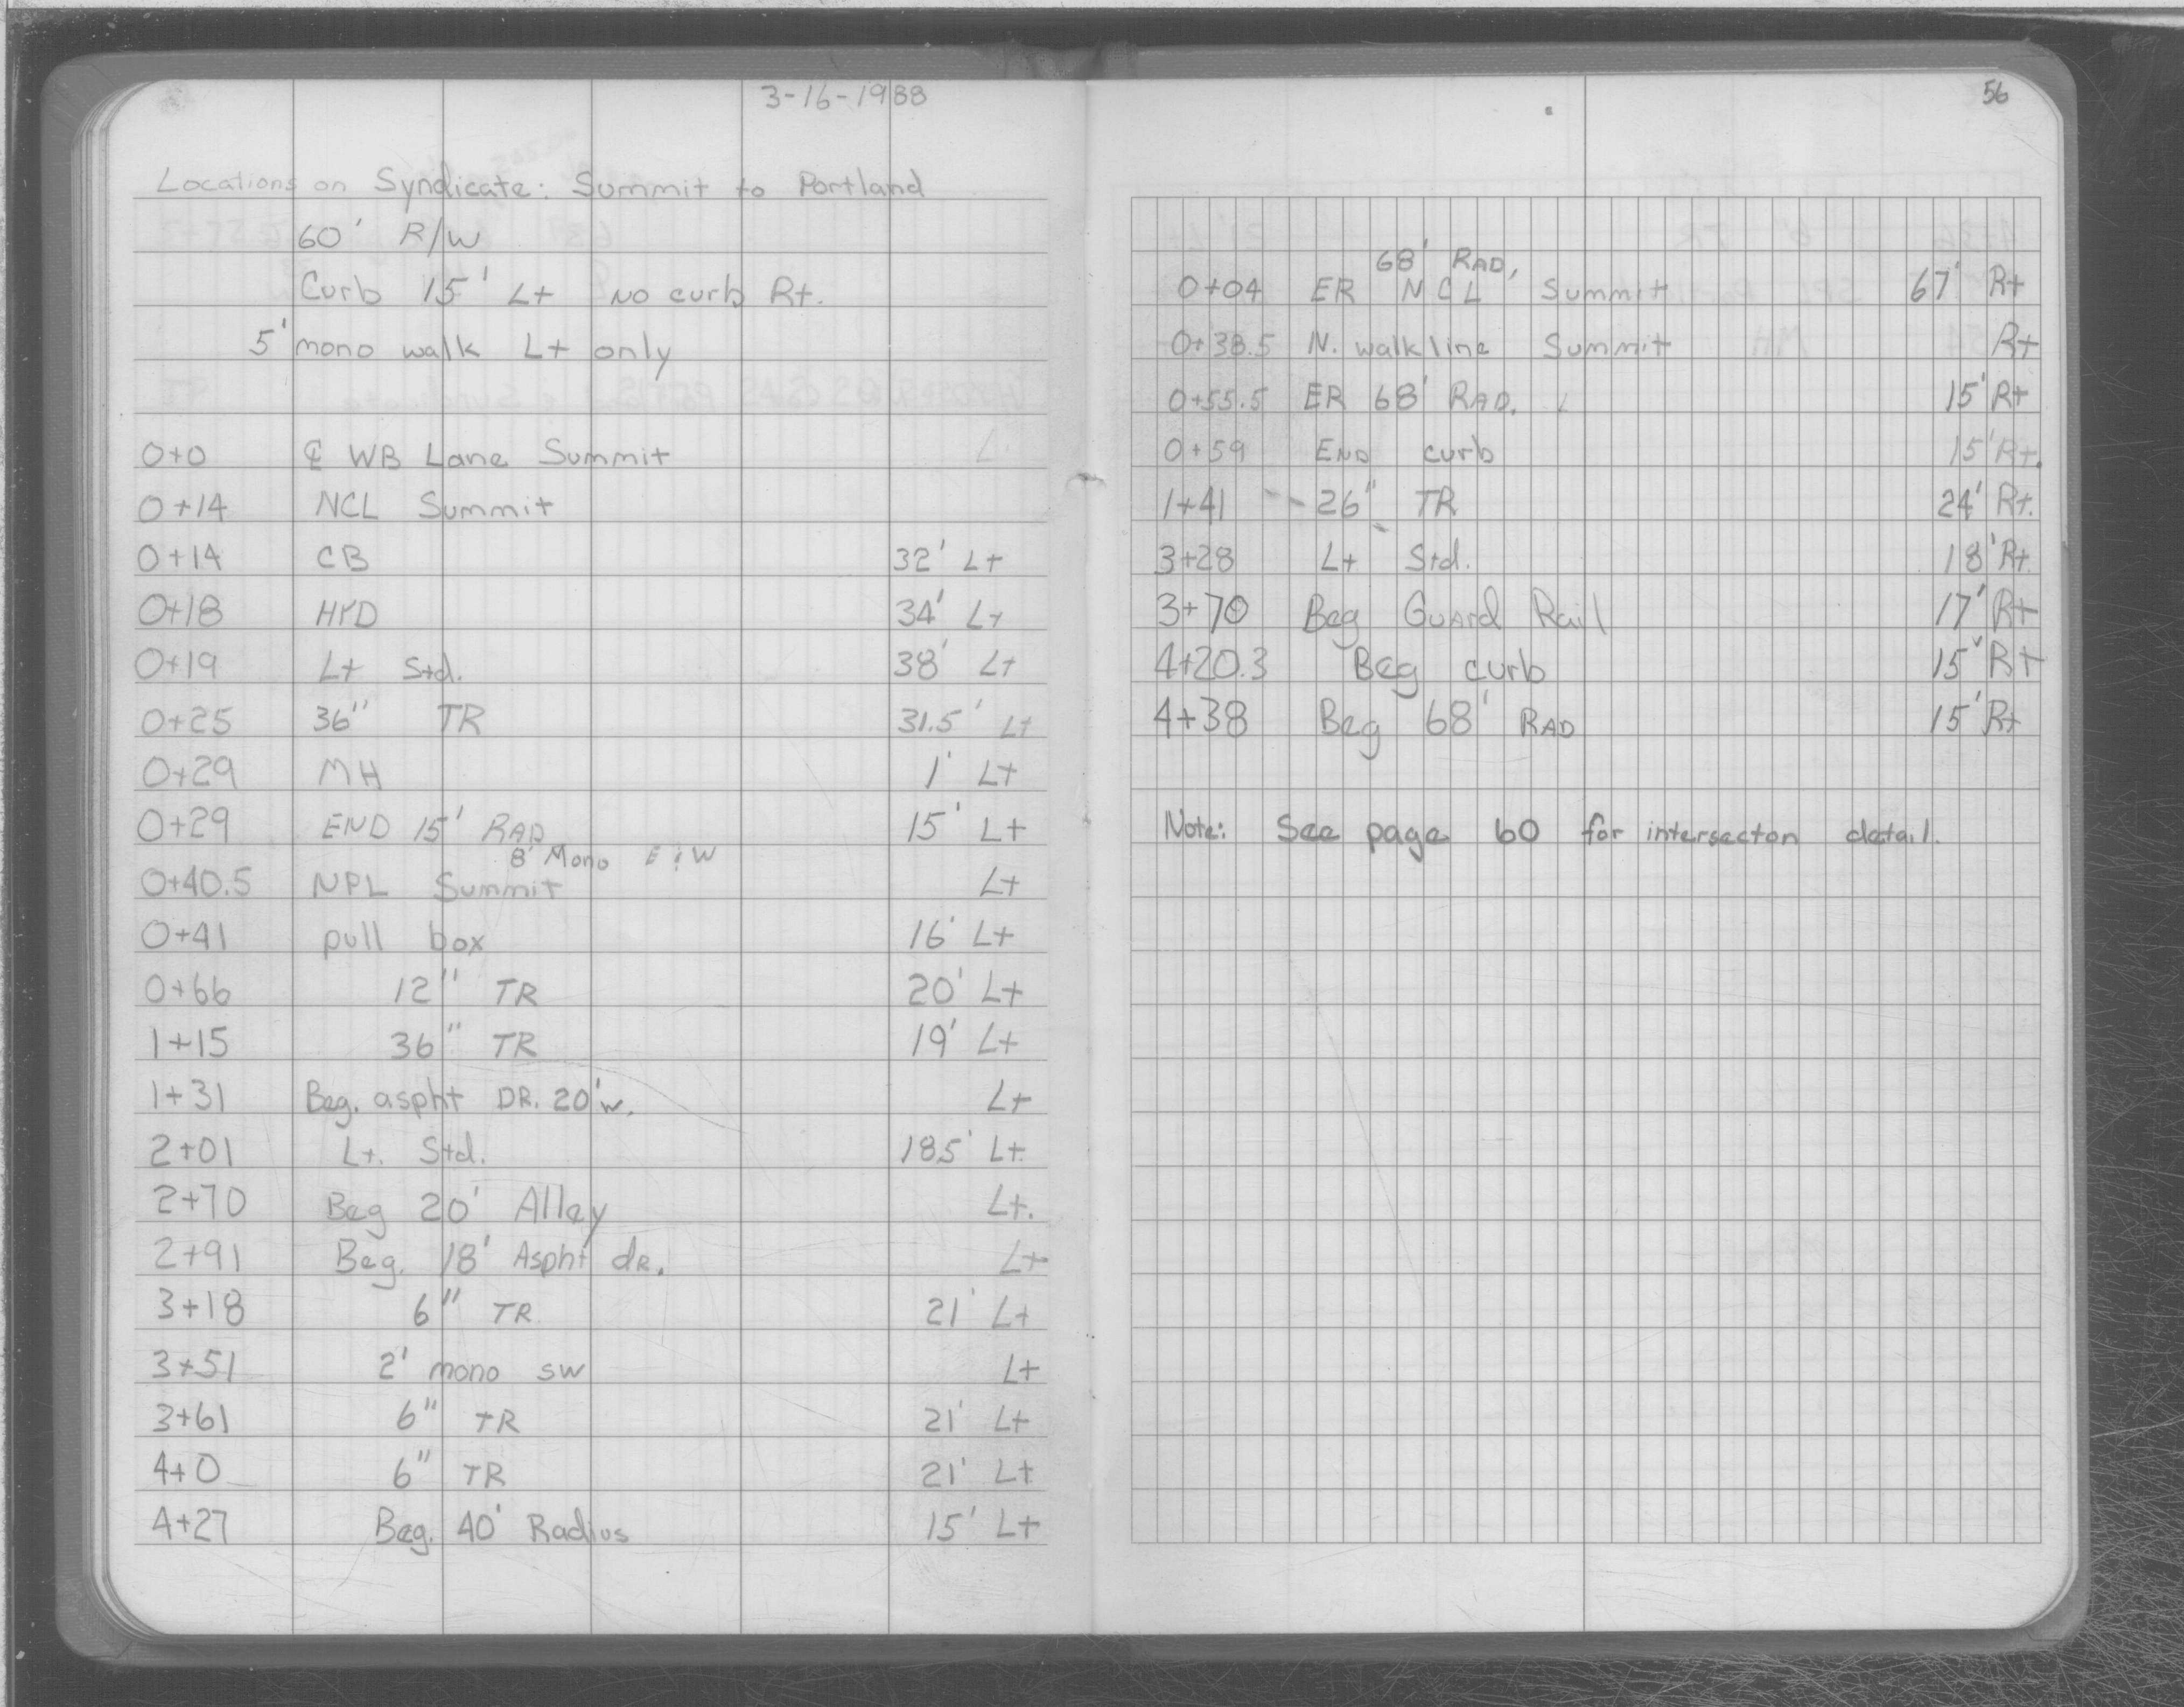 3-16-1988
Locations on Syndicate: Summit to Portland
60' R/W
Curb 15' Lt No curb Rt.
5' mono walk Lt only
0+0 ℄ WB Lane Summit
0+14 NCL Summit
0+14 CB 32' Lt
0+18 HYD 34' Lt
0+19 Lt Std. 38' Lt
0+25 36" TR 31.5' Lt
0+29 MH 1' Lt
0+29 END 15' RAD 15' Lt
8' Mono E & W
0+40.5 NPL Summit Lt
0+41 pull box 16' Lt
0+66 12" TR 20' Lt
1+15 36" TR 19' Lt
1+31 Beg. aspht DR. 20' w. Lt
2+01 Lt. Std. 18.5' Lt
2+70 Beg 20' Alley Lt.
2+91 Beg. 18' Aspht dR. Lt
3+18 6" TR 21' Lt
3+51 2' mono sw Lt
3+61 6" TR 21' Lt
4+0 6" TR 21' Lt
4+27 Beg. 40' Radius 15' Lt
56
68' RAD,
0+04 ER NCL Summit 67' Rt
0+38.5 N. walkline Summit Rt
0+55.5 ER 68' RAD. 15' Rt
0+59 END curb 15' Rt.
1+41 26" TR 24' Rt.
3+28 Lt Std. 18' Rt.
3+70 Beg Guard Rail 17' Rt
4+20.3 Beg curb 15' Rt
4+38 Beg 68' RAD 15' Rt
Note: See page 60 for intersecton detail.